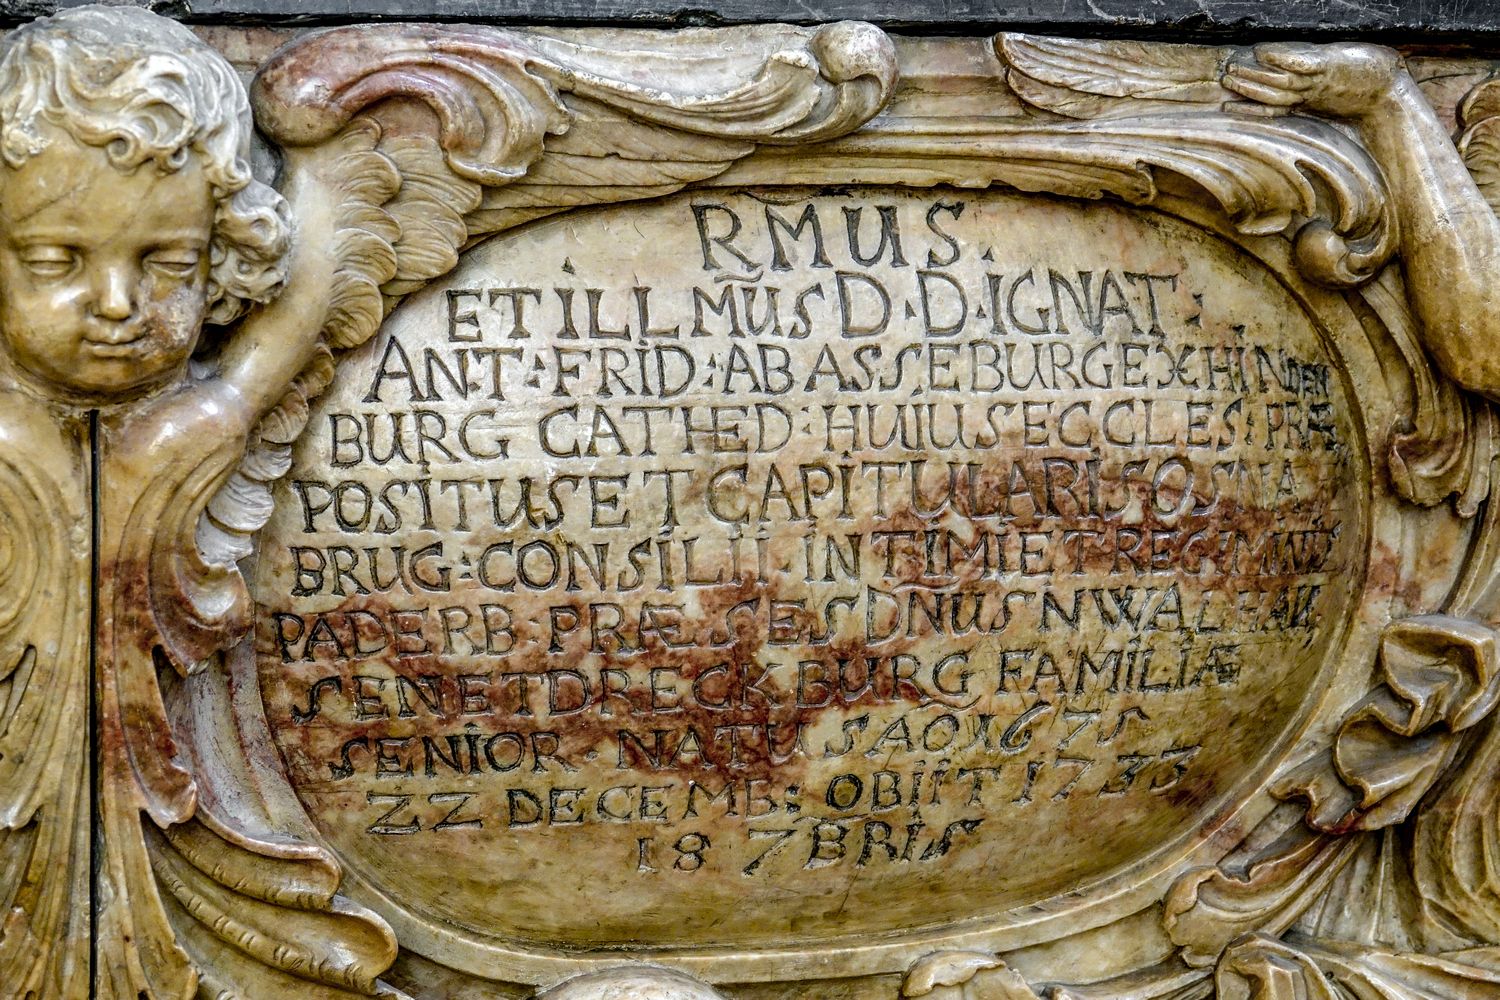 RMUS.
ET ILLMUS D·D·IGNAT:
ANT·FRID·AB ASSEBURG EX HINDEN
BURG CATHED: HUIUS ECCLES: PRÆ
POSITUS ET CAPITULARIS OSNA
BRUG: CONSILII INTIMI ET REGIMINIS
PADERB· PRÆSES DNUS N WALHAU
SEN ET DRECKBURG FAMILIÆ
SENIOR· NATUS AO 1675
22 DECEMB: OBIIT 1733
18 7BRIS